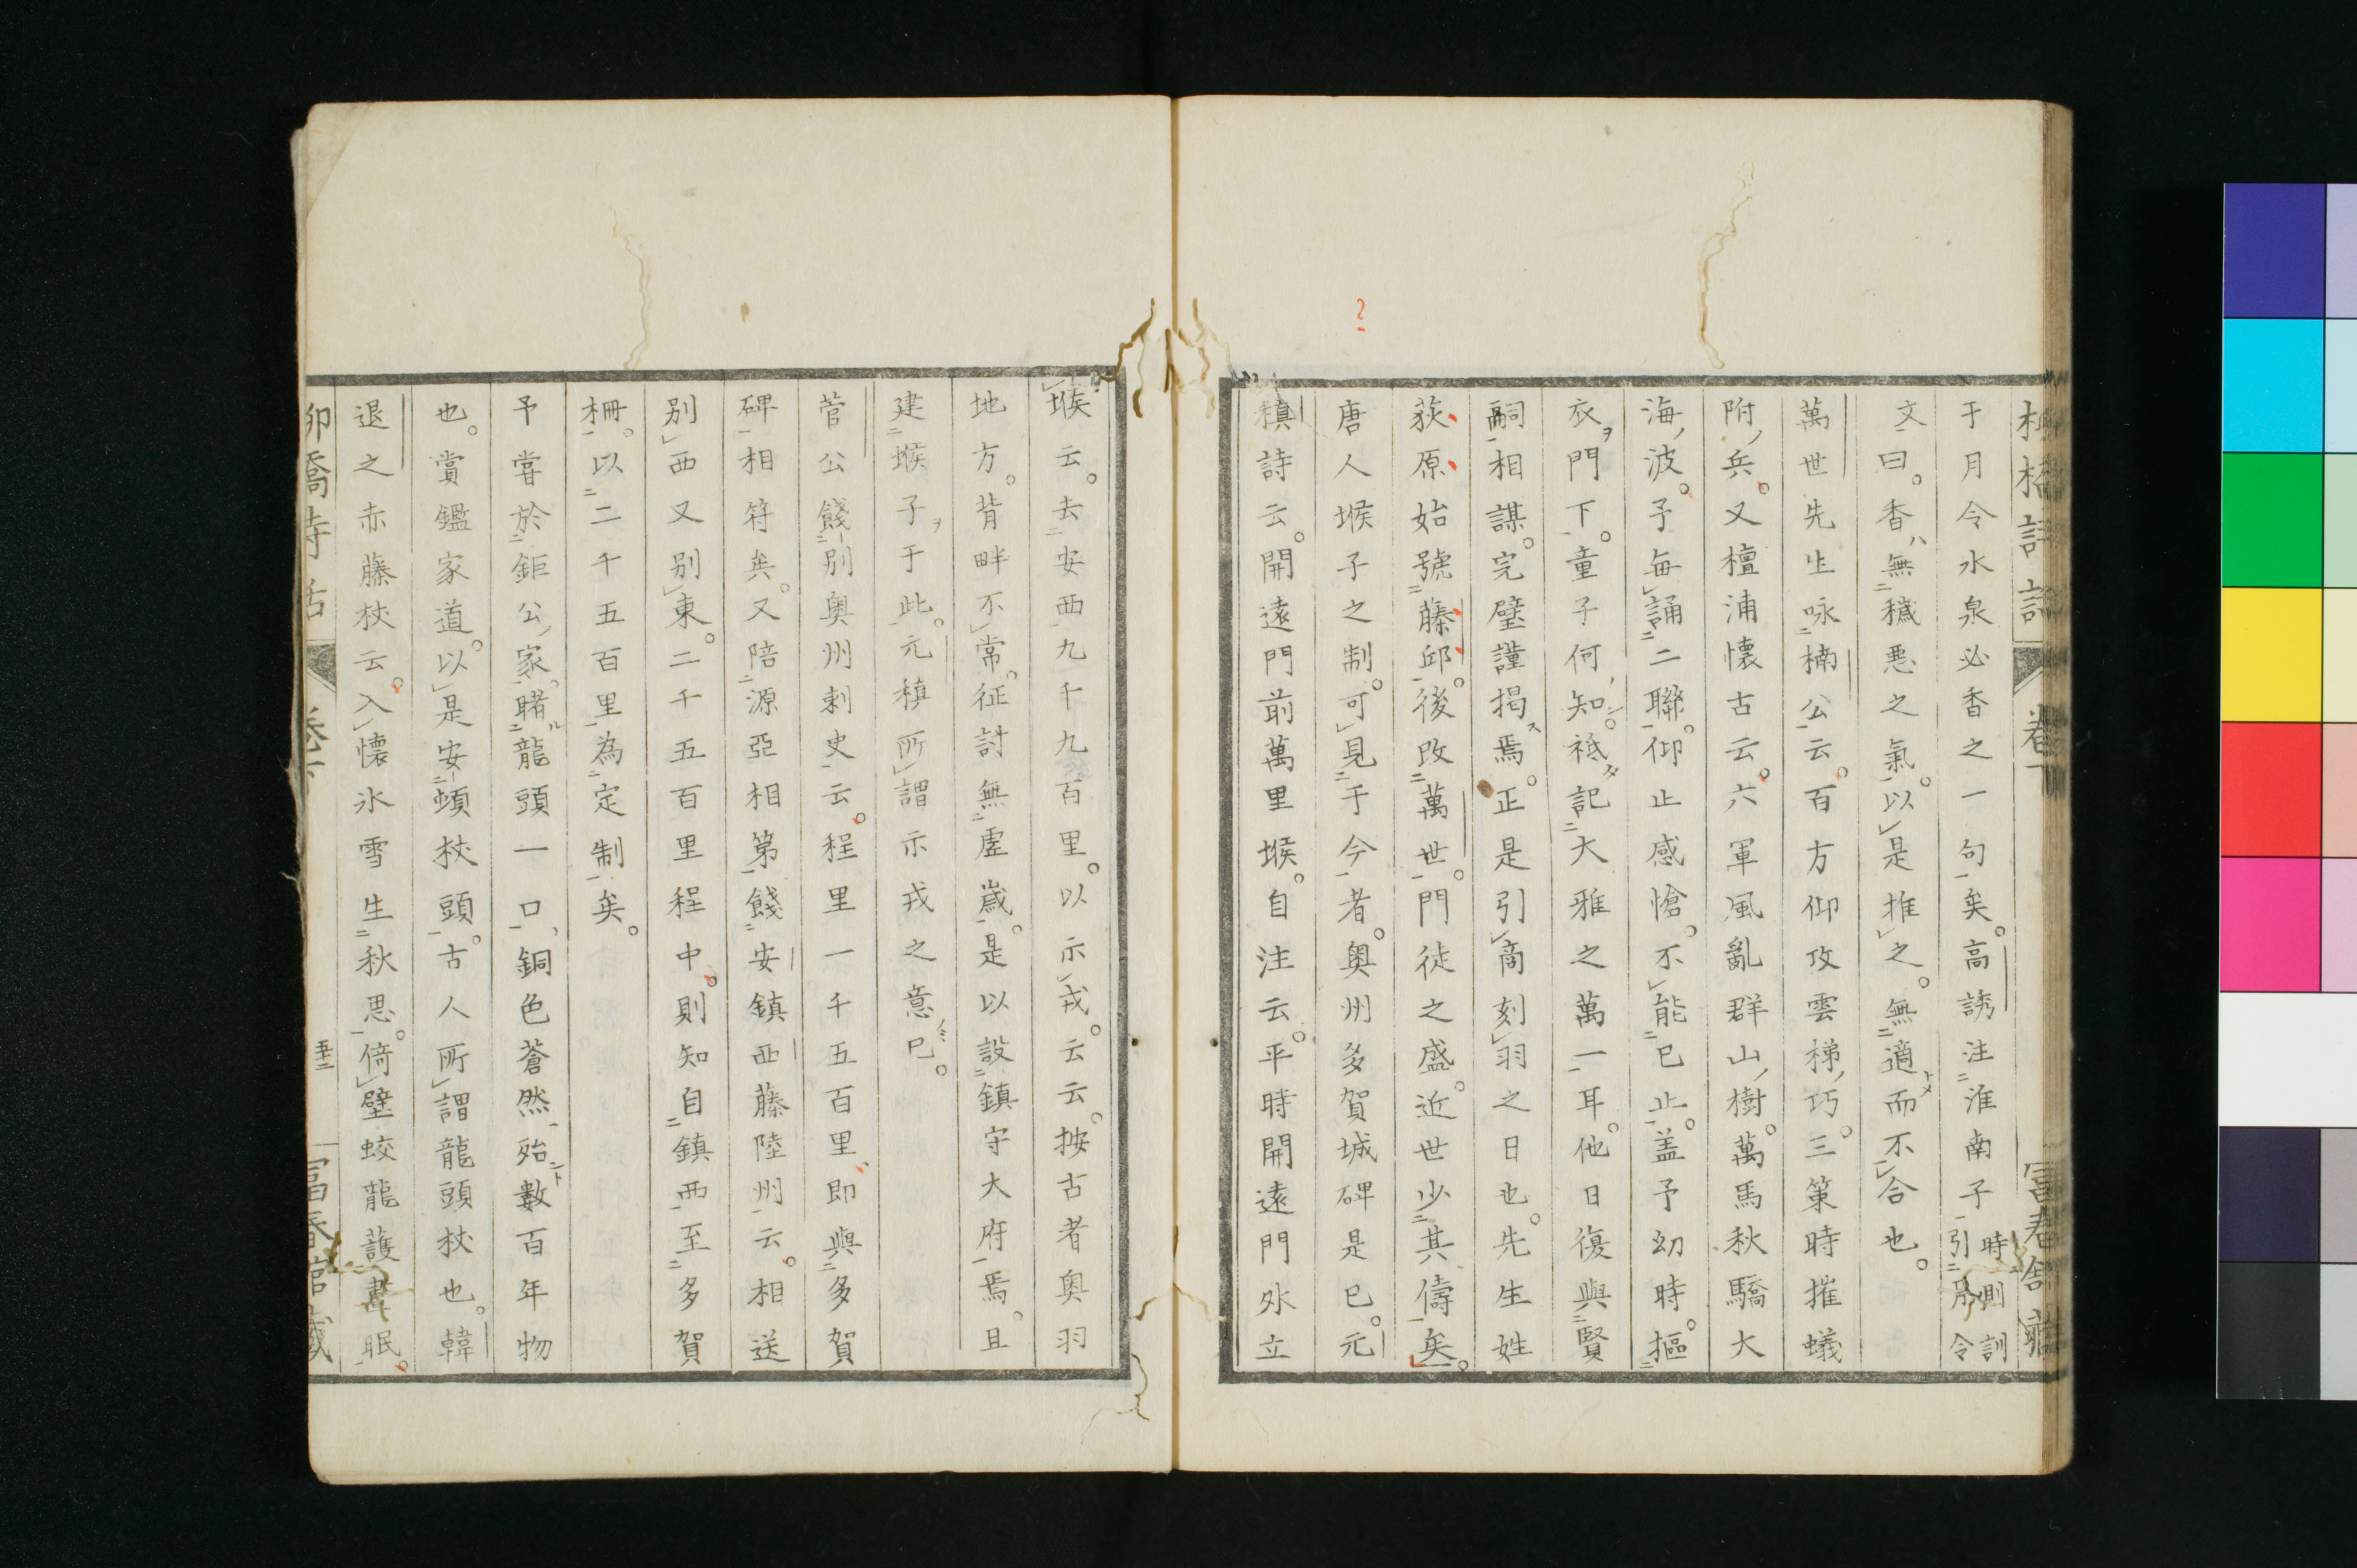 柳橋詩話 卷下 富春館藏
于月令水泉必香之一句矣。高誘注淮南子時則訓引月令
文曰。香無穢惡之氣。以是推之。無適而不合也。
萬世先生咏楠公云。百方仰攻雲梯巧。三策時摧蟻
附兵。又檀浦懷古云。六軍風亂群山樹。萬馬秋驕大
海波。予每誦二聯。仰止感愴。不能已止。盖予幼時。摳
衣門下。童子何知。祗記大雅之萬一耳。他日復與賢
嗣相謀。完璧謹揭焉。正是引商刻羽之日也。先生姓
荻原始號藤邱。後改萬世。門徒之盛。近世少其儔矣。
唐人堠子之制。可見于今者。奥州多賀城碑是已。元
稹詩云。開遠門前萬里堠。自注云。平時開遠門外立
堠云。去安西九千九百里。以示戎。云云。按古者奥羽
地方。背畔不常。征討無虚歳。是以設鎮守大府焉。且
建堠子于此。元槙所謂示戎之意已。
菅公餞別奥州刺史云。程里一千五百里、即與多賀
碑相符矣。又陪源亞相第餞安鎮西藤陸州云。相送
别西又别東。二千五百里程中。則知自鎮西至多賀
柵。以二千五百里為定制矣。
予甞於鉅公家。睹龍頭一口、銅色蒼然殆數百年物
也。賞鑑家道。以是安頓杖頭。古人所謂龍頭杖也。韓
退之赤藤杖云。入懷氷雪生秋思。倚壁蛟龍護晝眠。
柳橋詩話 卷下 富春館藏